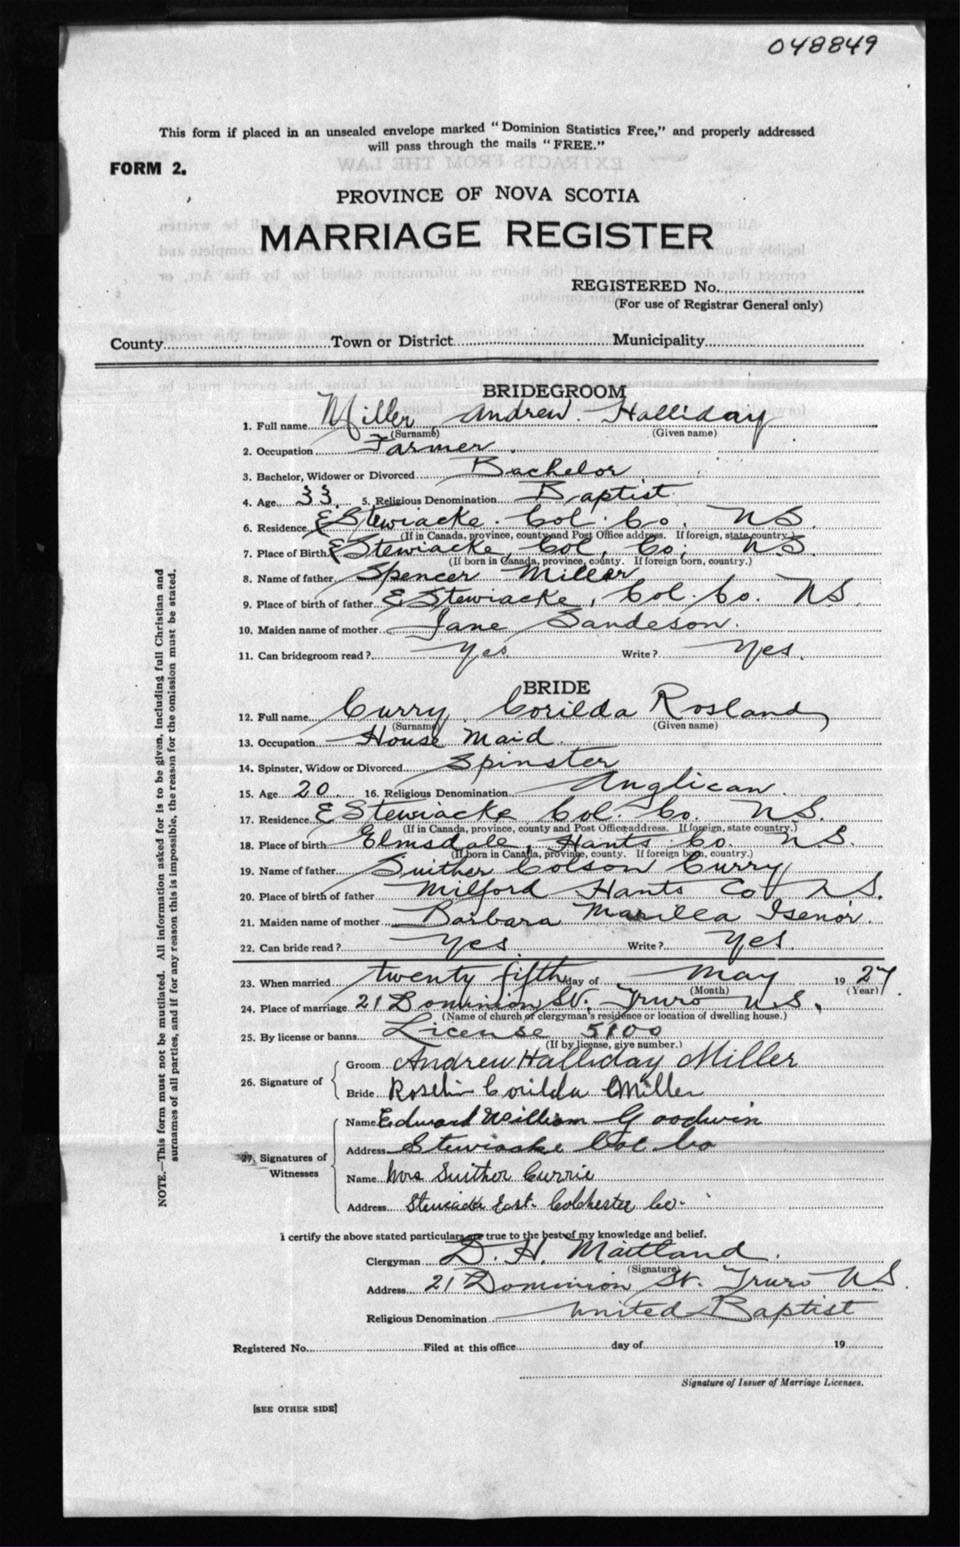 048849
This form if placed in an unsealed envelope marked "Dominion Statistics Free," and properly addressed
will pass through the mails "FREE."
FORM 2.
PROVINCE OF NOVA SCOTIA
MARRIAGE REGISTER
REGISTERED No.
(For use of Registrar General only)
County Town or District Municipality
BRIDEGROOM
1. Full name Miller Andrew Halliday
(Surname) (Given name)
2. Occupation Farmer
3. Bachelor, Widower or Divorced Bachelor
4. Age 33 5. Religious Denomination Baptist
6. Residence E Stewiacke. Col. Co. NS.
(If in Canada, province, county and Post Office address. If foreign, state country.)
7. Place of Birth E Stewiacke, Col, Co, N.S.
(If born in Canada, province, county. If foreign born, country.)
8. Name of father Spencer Miller
9. Place of birth of father E Stewiacke, Col. Co. NS
10. Maiden name of mother Jane Sandeson.
11. Can bridegroom read? Yes. Write? Yes.
BRIDE
12. Full name Curry, Corilda Rosland
(Surname) (Given name)
13. Occupation House Maid
14. Spinster, Widow or Divorced Spinster
15. Age 20 16. Religious Denomination Anglican.
17. Residence E Stewiacke Col. Co. NS.
(If in Canada, province, county and Post Office address. If foreign, state country.)
18. Place of birth Elmsdale, Hants Co. N.S.
(If born in Canada, province, county. If foreign born, country.)
19. Name of father Suither Colson Curry
20. Place of birth of father Milford Hants Co N.S.
21. Maiden name of mother Barbara Marilla Isenor.
22. Can bride read? Yes. Write? Yes.
23. When married twenty fifth day of May 1927
(Month) (Year)
24. Place of marriage 21 Dominion St. Truro N.S.
(Name of church or clergyman's residence or location of dwelling house.)
25. By license or banns License 5100
(If by license, give number.)
26. Signature of Groom Andrew Halliday Miller
Bride Corilda Miller
27. Signatures of Witnesses Name Edward William Goodwin
Address Stewiacke Col Co
Name Mrs Suither Currie
Address Stewiacke East. Colchester Co.
I certify the above stated particulars are true to the best of my knowledge and belief.
Clergyman D. H. Maitland.
(Signature)
Address 21 Dominion St. Truro N.S.
Religious Denomination United Baptist
Registered No. Filed at this office day of 19
Signature of Issuer of Marriage Licenses.
[SEE OTHER SIDE]
NOTE.—This form must not be mutilated. All information asked for is to be given, including full Christian and
surnames of all parties, and if for any reason this is impossible, the reason for the omission must be stated.